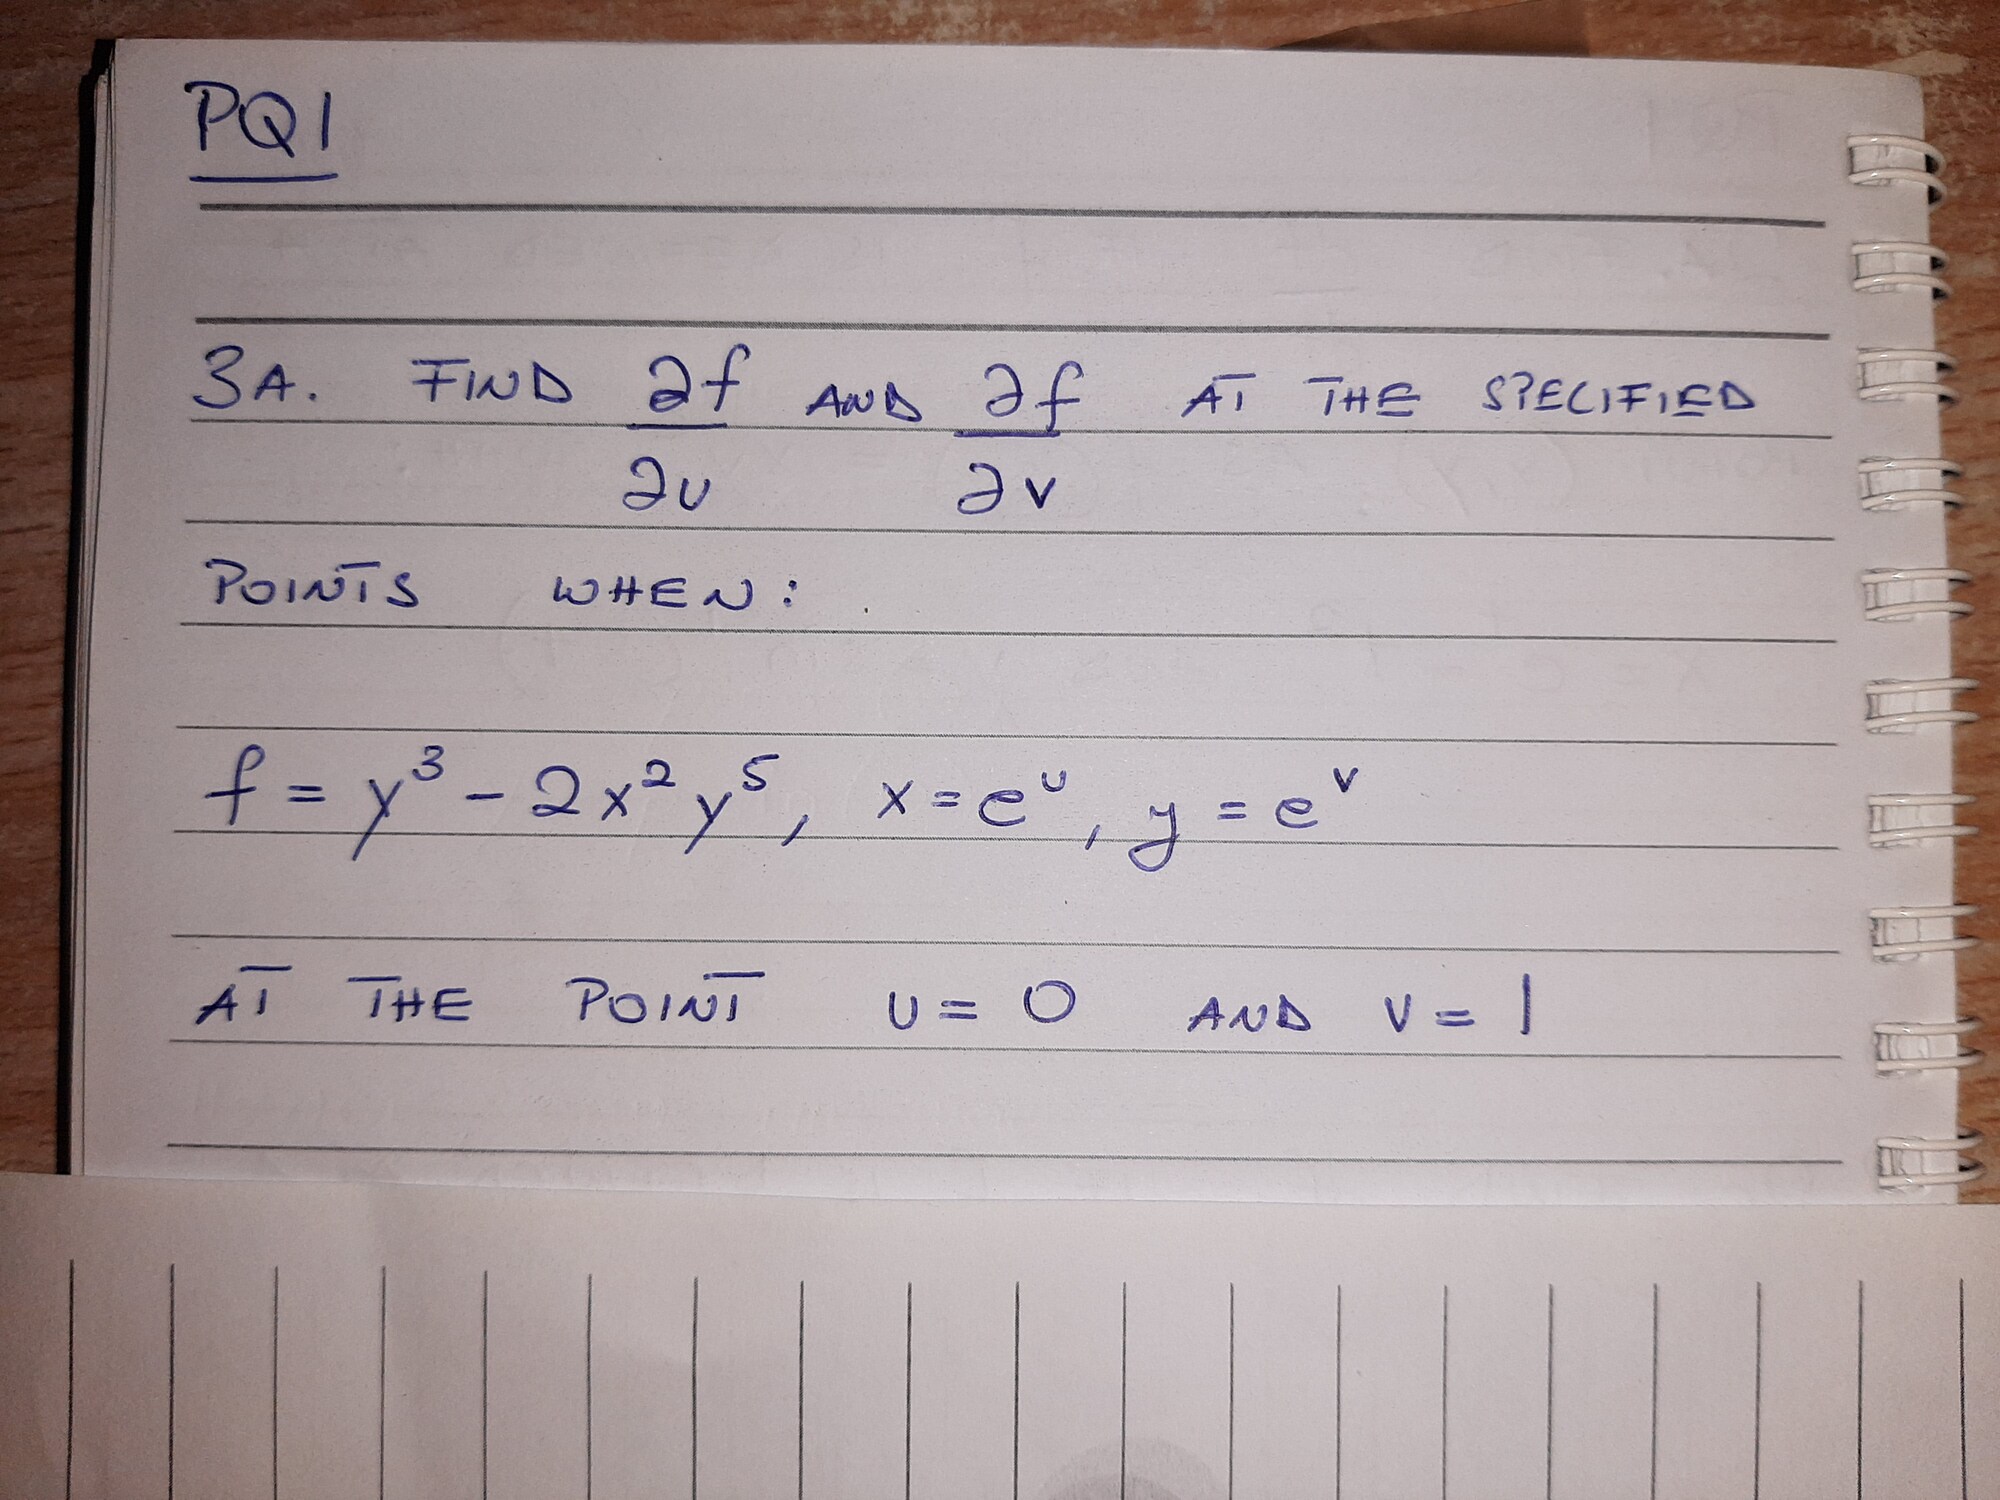 PQ1
3A. FIND ∂f/∂u AND ∂f/∂v AT THE SPECIFIED
POINTS WHEN:
f = y³ - 2x²y⁵, x = eᵘ, y = eᵛ
AT THE POINT u = 0 AND v = 1